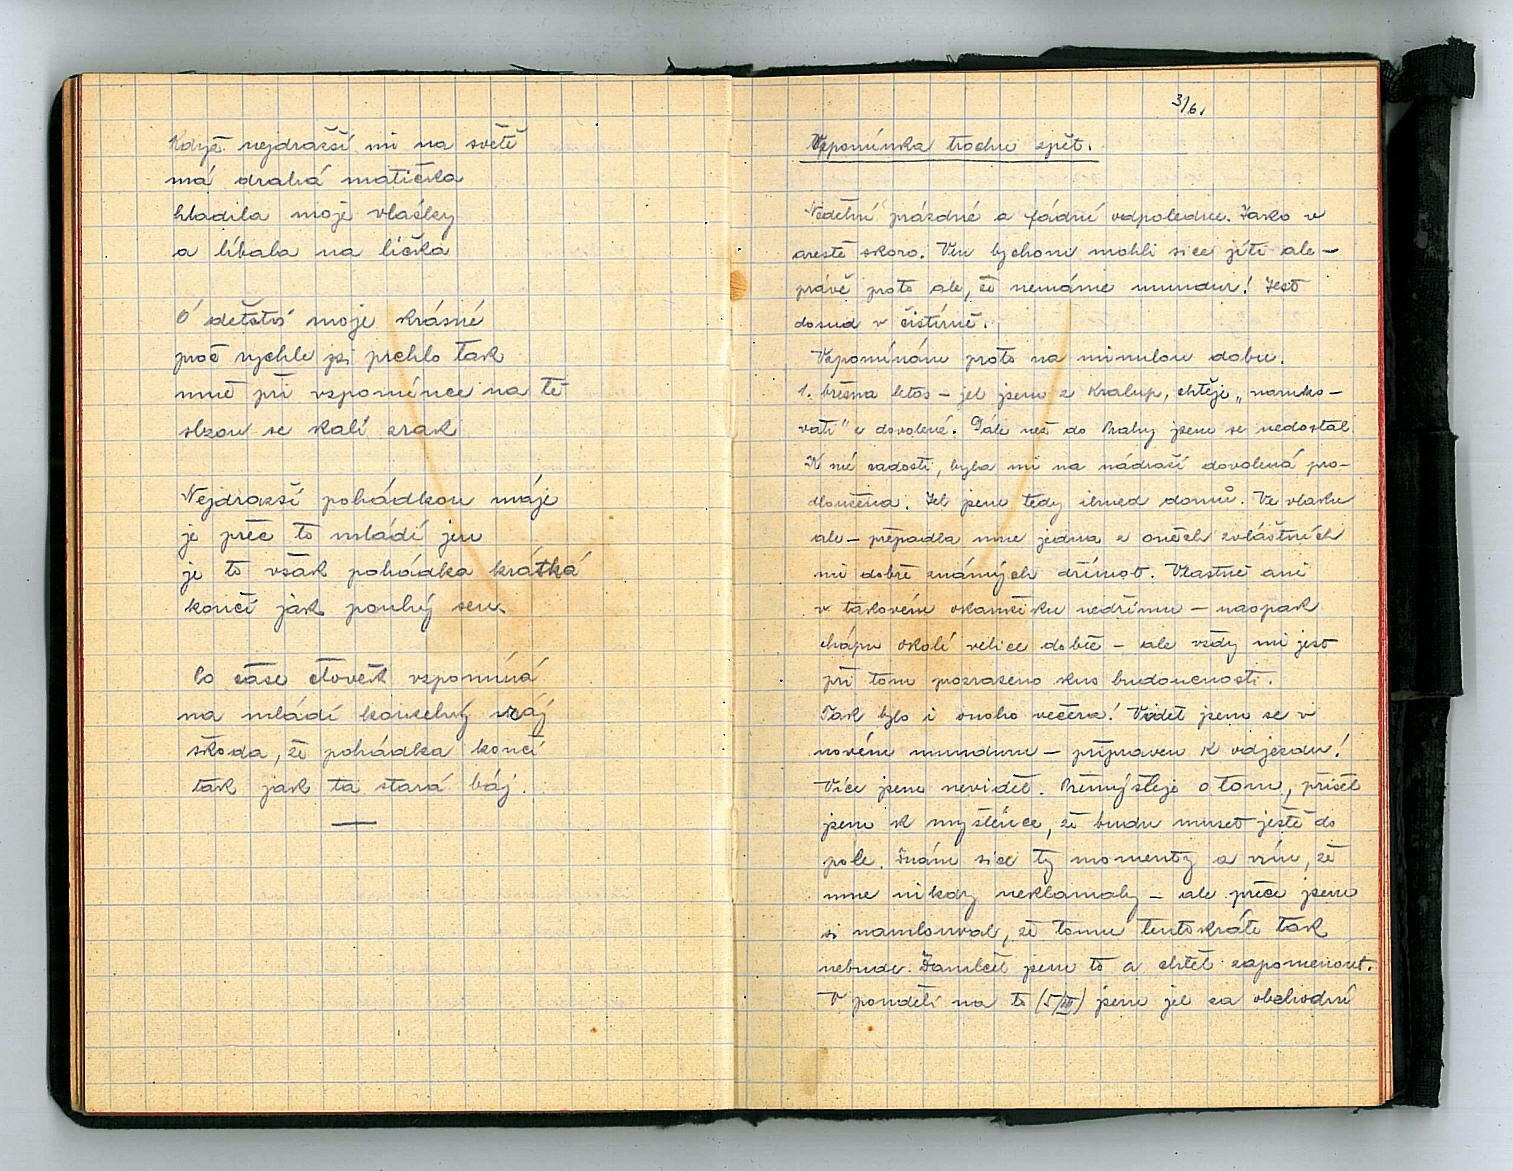 Když nejdražší mi na světě
má drahá matička
hladila moje vlásky
a líbala na líčka
Ó dětství moje krásné
proč rychle jsi prchlo tak
mně při vzpomínce na tě
slzou se kalí zrak
Nejdražší pohádkou máje
je přec to mládí jen
je to však pohádka krátká
končí jak pouhý sen.
Co čase člověk vzpomíná
na mládí kouzelný ráj
škoda, že pohádka končí
tak jak ta stará báj.
3/6.
Vzpomínka trochu zpět.
Nedělní prázdné a fádní odpoledne. Jako v
arestě skoro. Ven bychom mohli sice jíti ale –
právě proto ale, že nemáme mundur! Jest
dosud v čistírně.
Vzpomínám proto na minulou dobu.
1. března letos – jel jsem z Kralup, chtěje „naruko-
vati" z dovolené. Dále než do Prahy jsem se nedostal
K mé radosti, byla mi na nádraží dovolená pro-
dloužena. Jel jsem tedy ihned domů. Ve vlaku
ale – přepadla mne jedna z oněch zvláštních
mi dobře známých dřímot. Vlastně ani
v takovém okamžiku nedřímu – naopak
chápu okolí velice dobře – ale vždy mi jest
při tom prozrazeno kus budoucnosti.
Tak bylo i onoho večera! Viděl jsem se v
novém munduru – připraven k odjezdu!
Více jsem neviděl. Přemýšleje o tom, přišel
jsem k myšlénce, že budu muset ještě do
pole. Znám sice ty momenty a vím, že
mne nikdy neklamaly – ale přece jsem
si namlouval, že tomu tentokráte tak
nebude. Zamlčel jsem to a chtěl zapomenout.
V pondělí na to (5/III) jsem jel za obchodní